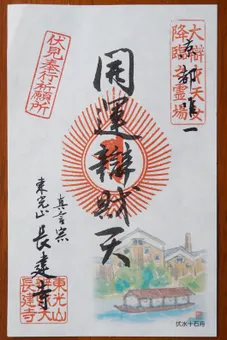 大辨財天女
降臨之霊場
京都唯一
伏見奉行祈願所
開運辨財天
真言宗
東光山 長建寺
東光山
辨天
長建寺
伏水十石舟